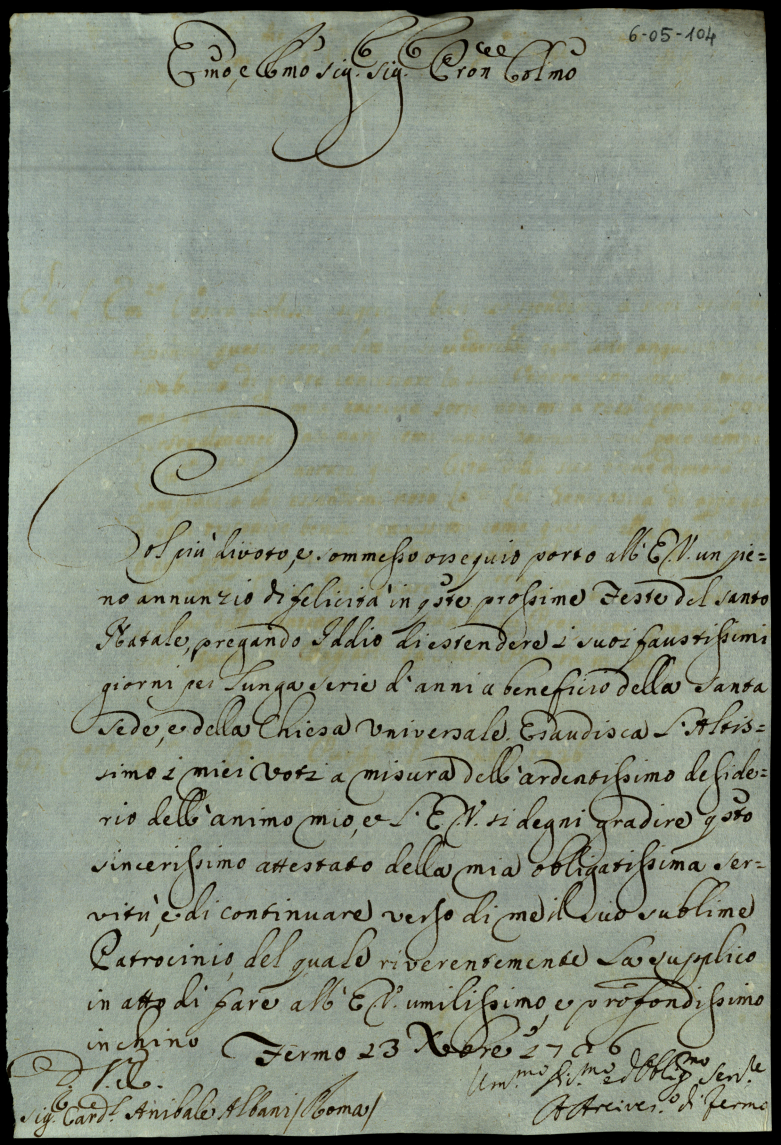 6-05-104
Emo, e Rmo Sig. Sig. Pron Colmo
Col più divoto, e sommesso ossequio porto all' E.V. un pie=
no annunzio di felicità in qste prossime Feste del Santo
Natale, pregando Iddio di estendere i suoi faustissimi
giorni per lunga serie d'anni a beneficio della Santa
Sede, e della Chiesa Universale. Esaudisca l'Altis=
simo i miei voti a misura dell'ardentissimo deside=
rio dell'animo mio, e l'E.V. si degni gradire qsto
sincerissimo attestato della mia obligatissima ser=
vitù, e di continuare verso di me il suo sublime
Patrocinio, del quale riverentemente la supplico
in atto di fare all'E.V. umilissimo, e profondissimo
inchino Fermo 13 Xbre 1716
D. V. E.
Sig. Card.l Anibale Albani /Roma/
Um.mo Obblig.mo Ser.re
Arcives.o di Fermo